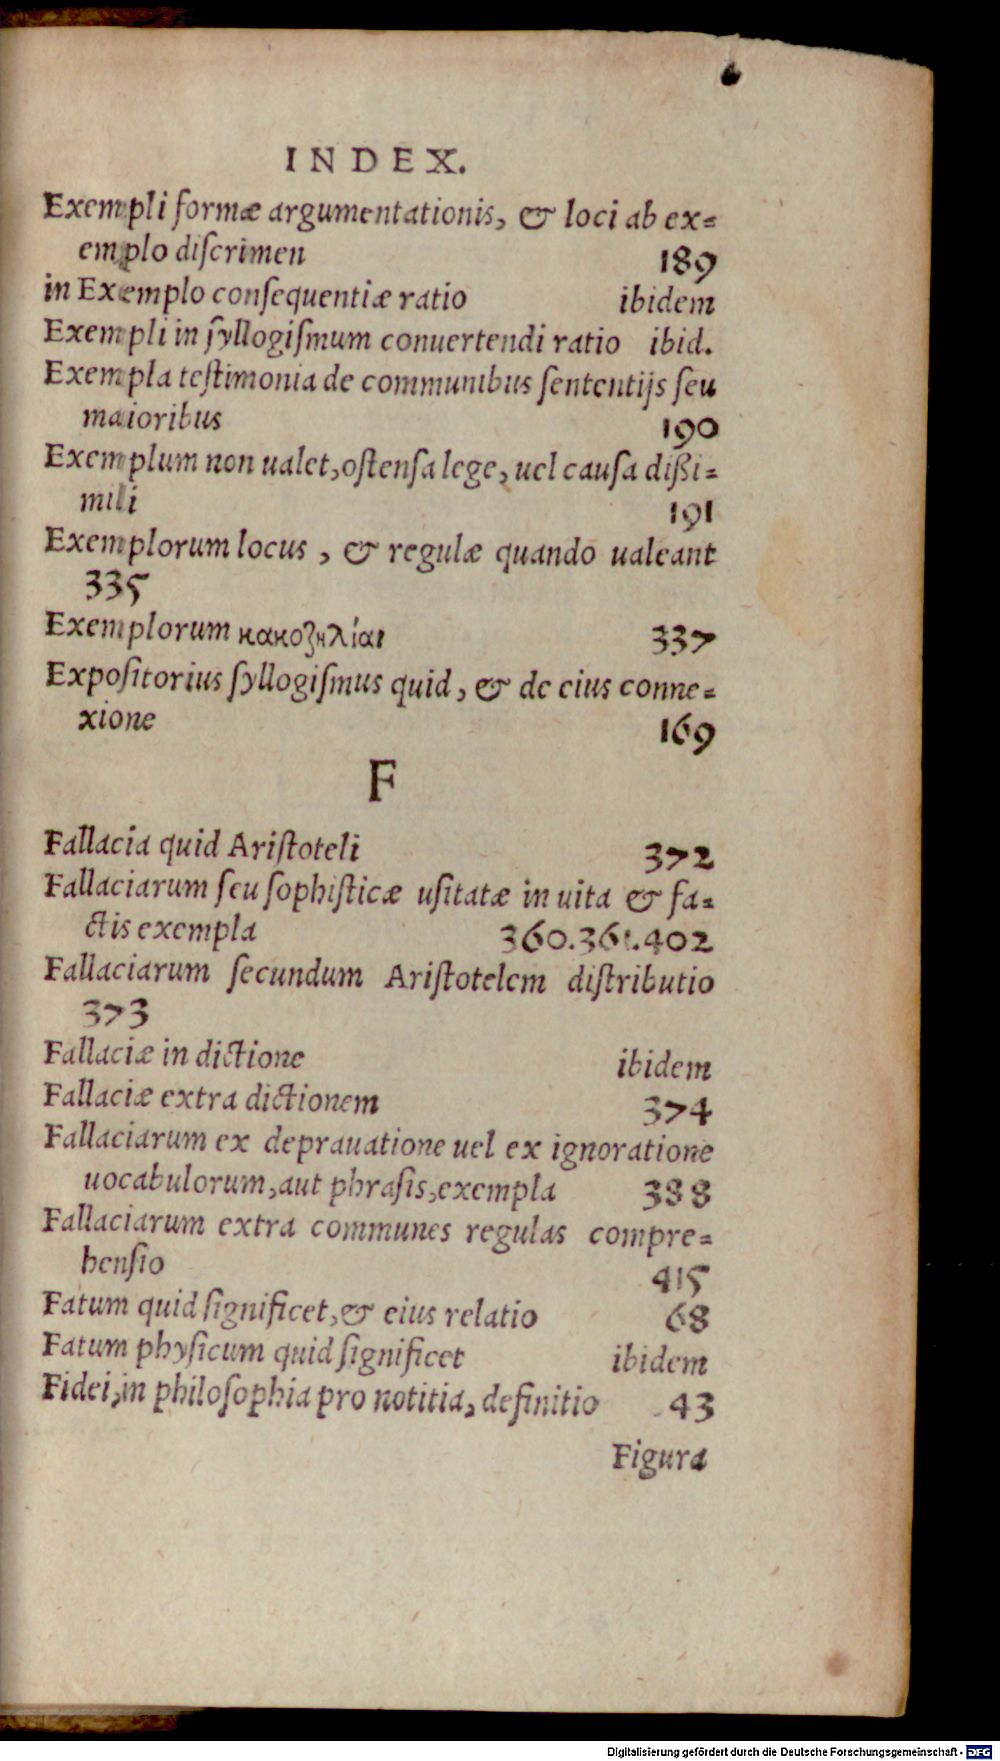 INDEX.
Exempli formæ argumentationis, & loci ab ex=
emplo discrimen 189
in Exemplo consequentiæ ratio ibidem
Exempli in syllogismum conuertendi ratio ibid.
Exempla testimonia de communibus sententijs seu
maioribus 190
Exemplum non ualet, ostensa lege, uel causa dißi=
mili 191
Exemplorum locus , & regulæ quando ualeant
335
Exemplorum κακοζηλίαι 337
Expositorius syllogismus quid, & de eius conne=
xione 169
F
Fallacia quid Aristoteli 372
Fallaciarum seu sophisticæ usitatæ in uita & fa=
ctis exempla 360.361.402
Fallaciarum secundum Aristotelem distributio
373
Fallaciæ in dictione ibidem
Fallaciæ extra dictionem 374
Fallaciarum ex deprauatione uel ex ignoratione
uocabulorum, aut phrasis, exempla 388
Fallaciarum extra communes regulas compre=
hensio 415
Fatum quid significet, & eius relatio 68
Fatum physicum quid significet ibidem
Fidei, in philosophia pro notitia, definitio 43
Figura
Digitalisierung gefördert durch die Deutsche Forschungsgemeinschaft - DFG